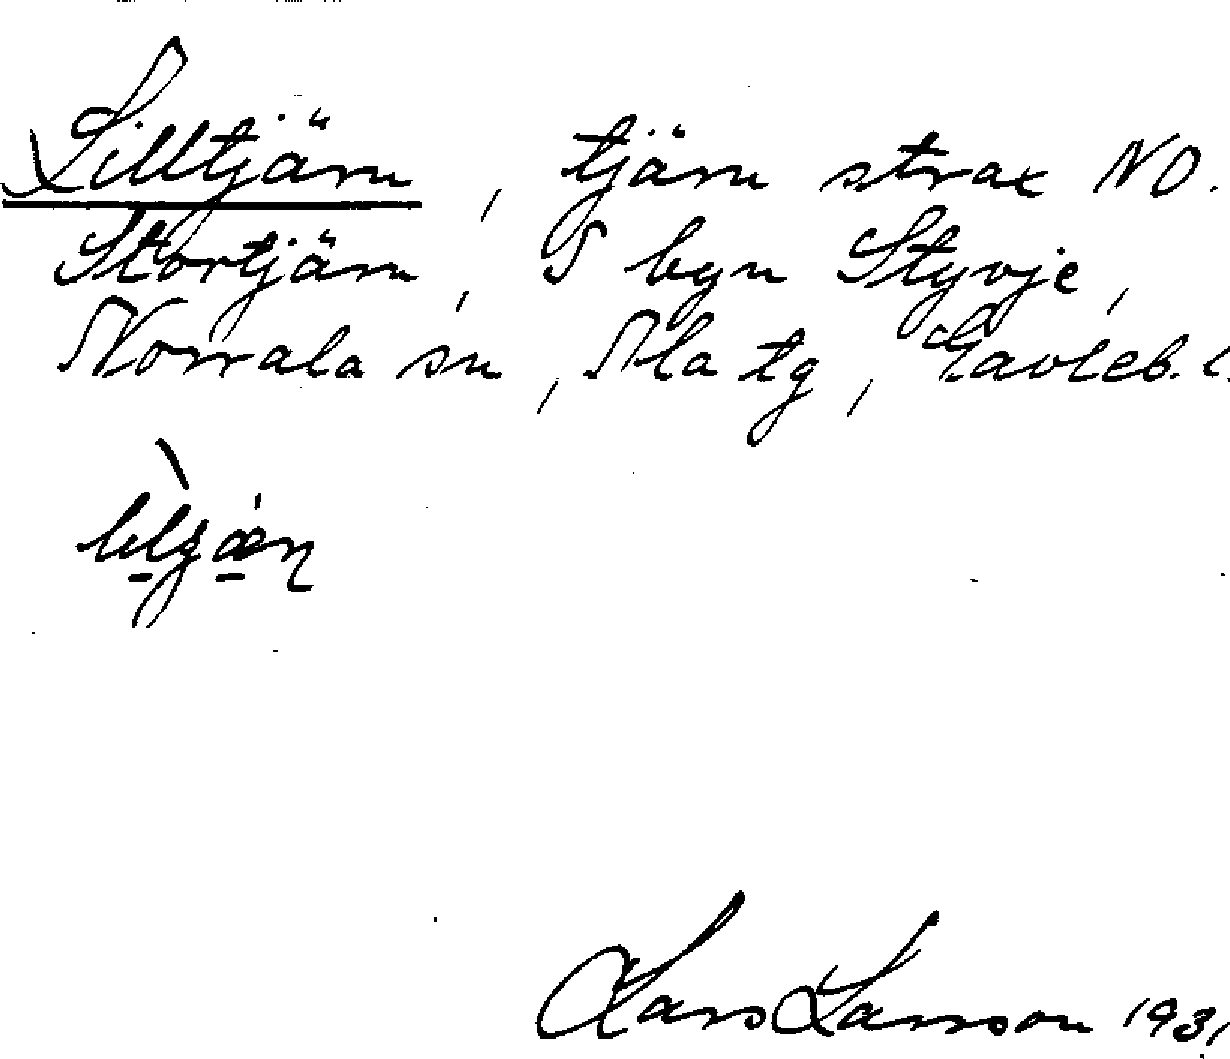 Lilltjärn, tjärn strax NO.
Stortjärn, S byn Styvje,
Norrala sn, Nla tg, Gävleb. l.
Lars Larsson 1931